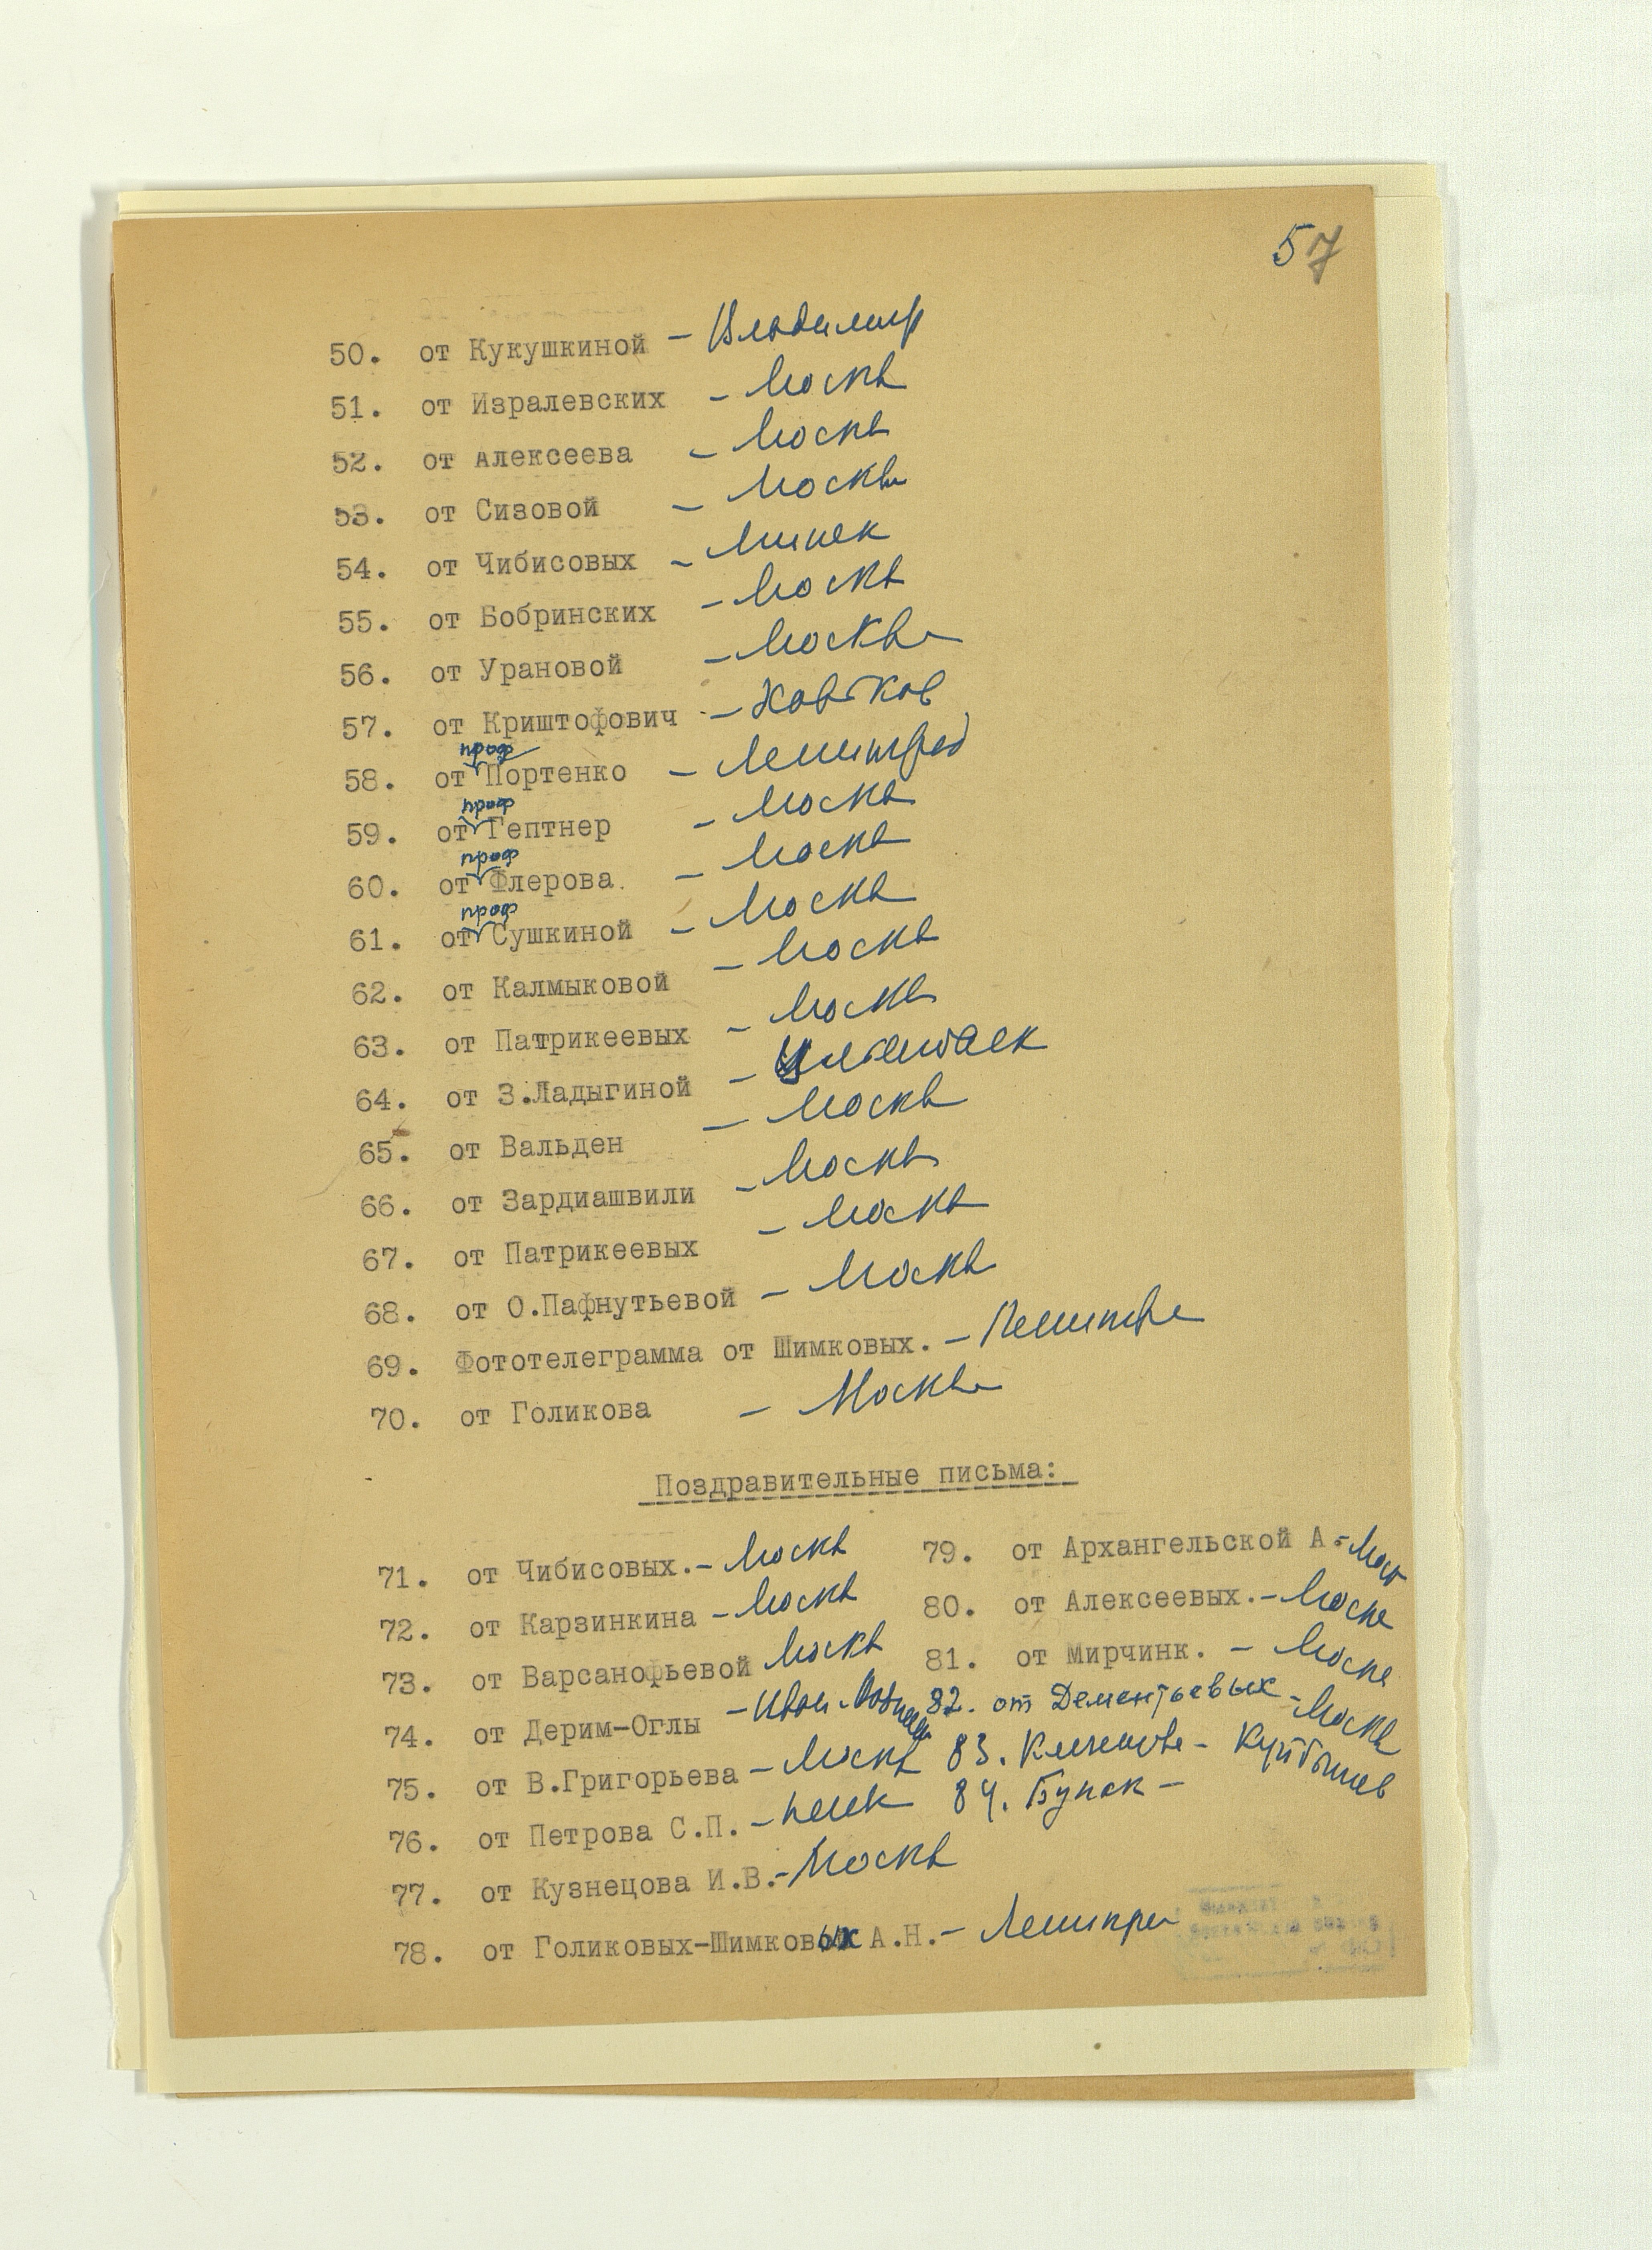 57
50. от Кукушкиной – Владимир
51. от Изралевских – Москва
52. от Алексеева – Москва
53. от Сизовой – Москва
54. от Чибисовых – Минск
55. от Бобринских – Москва
56. от Урановой – Москва
57. от Криштофович – Харьков
58. от Портенко – Ленинград
59. от Гептнер – Москва
60. от Флерова. – Москва
61. от Сушкиной – Москва
62. от Калмыковой – Москва
63. от Патрикеевых – Москва
64. от З.Ладыгиной –
65. от Вальден – Москва
66. от Зардиашвили – Москва
67. от Патрикеевых – Москва
68. от О.Пафнутьевой – Москва
69. Фототелеграмма от Шимковых. – Ленингра
70. от Голикова – Москва
Поздравительные письма:
71. от Чибисовых. – Москва
72. от Карзинкина – Москва
73. от Варсанофьевой Москва
74. от Дерим-Оглы –
75. от В.Григорьева – Москва
76. от Петрова С.П. –
77. от Кузнецова И.В. – Москва
78. от Голиковых-Шимковых А.Н. – Ленингра
79. от Архангельской А. – Моск
80. от Алексеевых. – Москва
81. от Мирчинк. – Москва
82. от Дементьевых – Москва
83. – Куйбышев
84. Бунак –